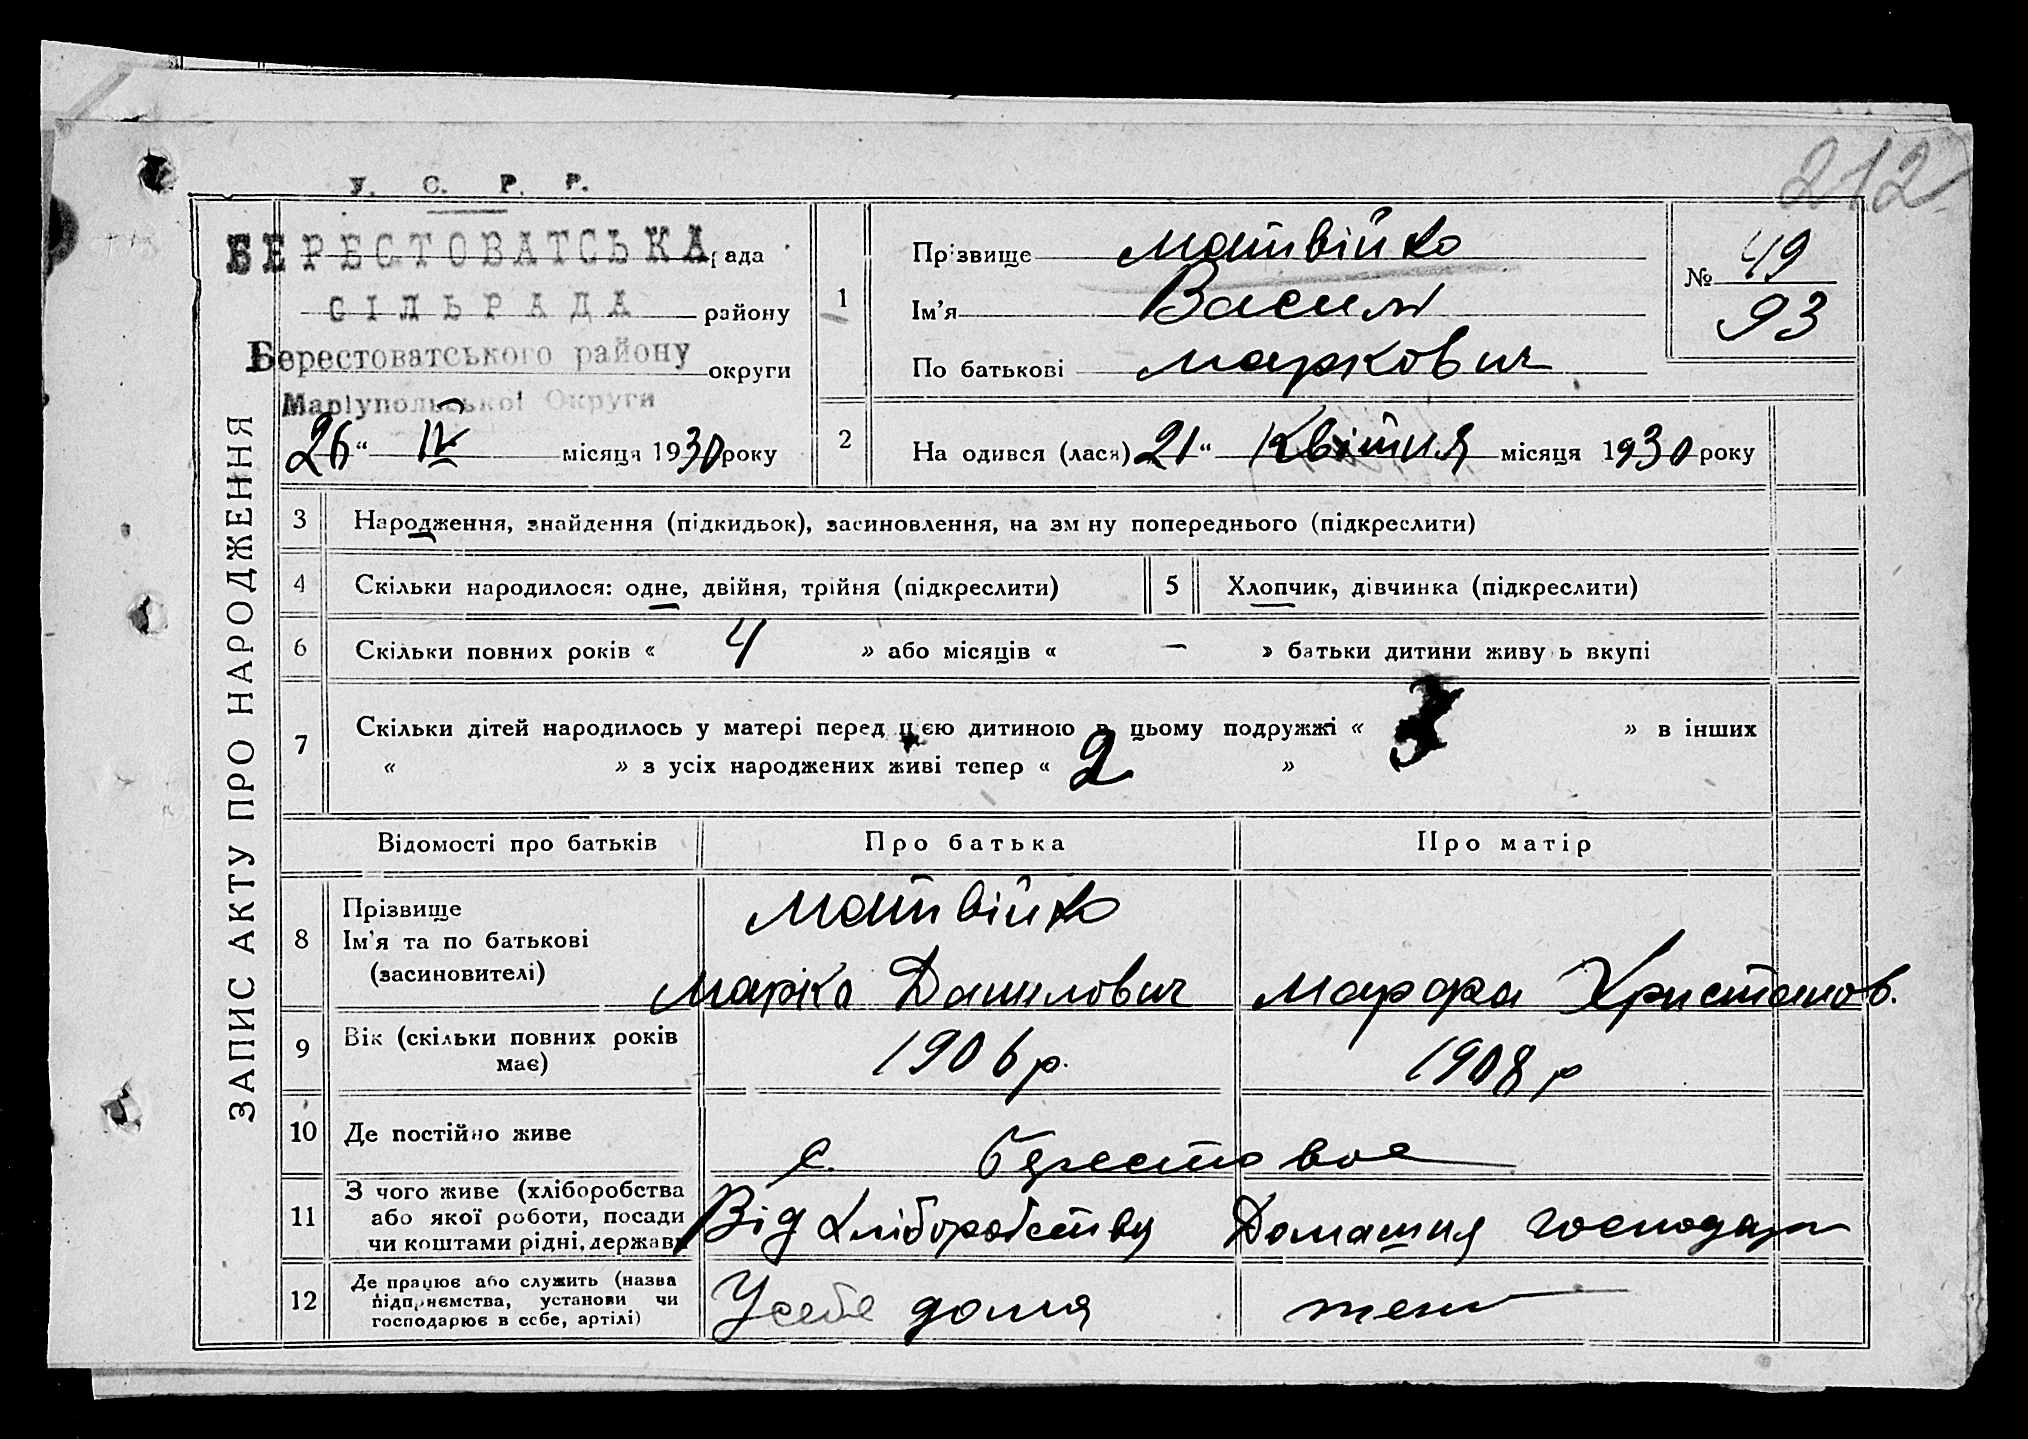 212
У. С. Р. Р.
БЕРЕСТОВАТСЬКА рада
СІЛЬРАДА району
Берестоватського району округи
Маріупольської Округи
26 " IV місяця 1930 року
ЗАПИС АКТУ ПРО НАРОДЖЕННЯ
1 Прізвище Матвійко
Ім'я Василь
По батькові Маркович
№ 49
93
2 На одився (лася) 21 " Квітня місяця 1930 року
3 Народження, знайдення (підкидьок), засиновлення, на зм ну попереднього (підкреслити)
4 Скільки народилося: одне, двійня, трійня (підкреслити) 5 Хлопчик, дівчинка (підкреслити)
6 Скільки повних років « 4 » або місяців « — » батьки дитини живу ь вкупі
7 Скільки дітей народилось у матері перед цією дитиною в цьому подружжі « 3 » в інших
« » з усіх народжених живі тепер « 2 »
Відомості про батьків Про батька Про матір
8 Прізвище
Ім'я та по батькові
(засиновителі)
Матвійко
Марко Данилович Марфа Христанов.
9 Вік (скільки повних років
має)
1906 р. 1908 р
10 Де постійно живе с. Берестовое
11 З чого живе (хліборобства
або якої роботи, посади
чи коштами рідні, держави
Від хліборобству Домашня господар
12 Де працює або служить (назва
підприємства, установи чи
господарює в себе, артілі)
У себе дома теж